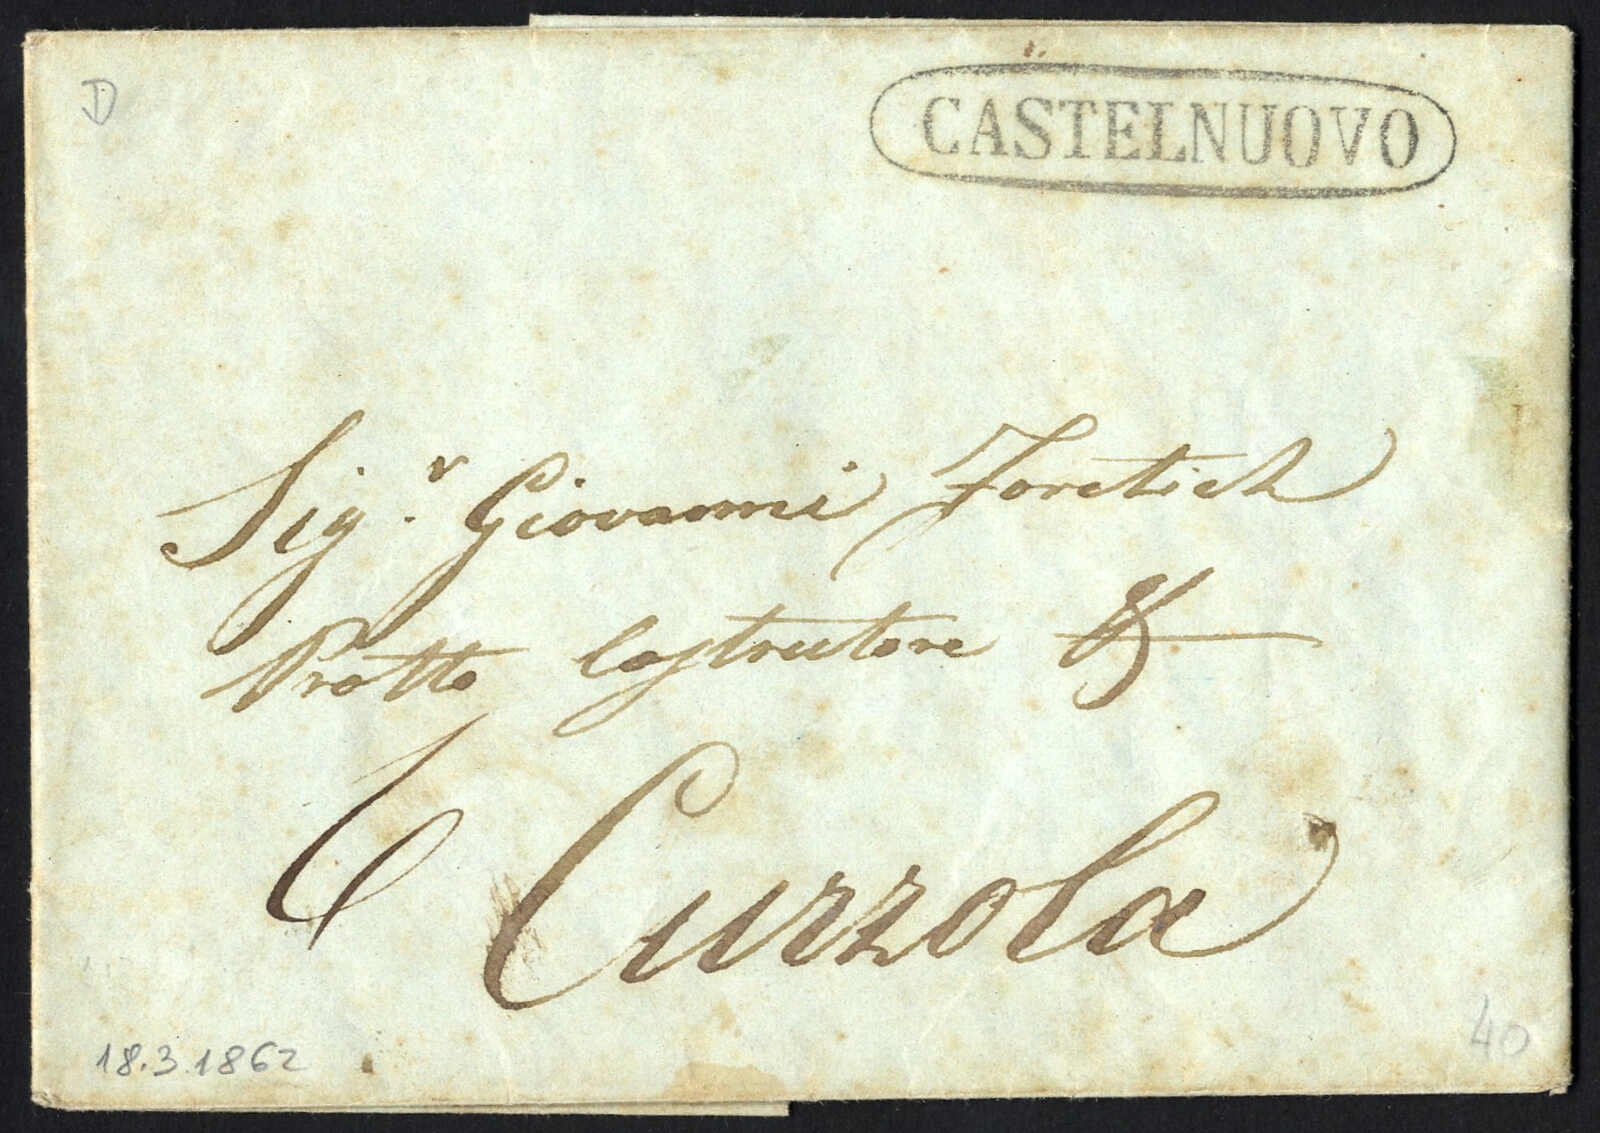 D
CASTELNUOVO
Sig.r Giovanni Foretich
Protto Costrutore &
6 Curzola
18.3.1862
40